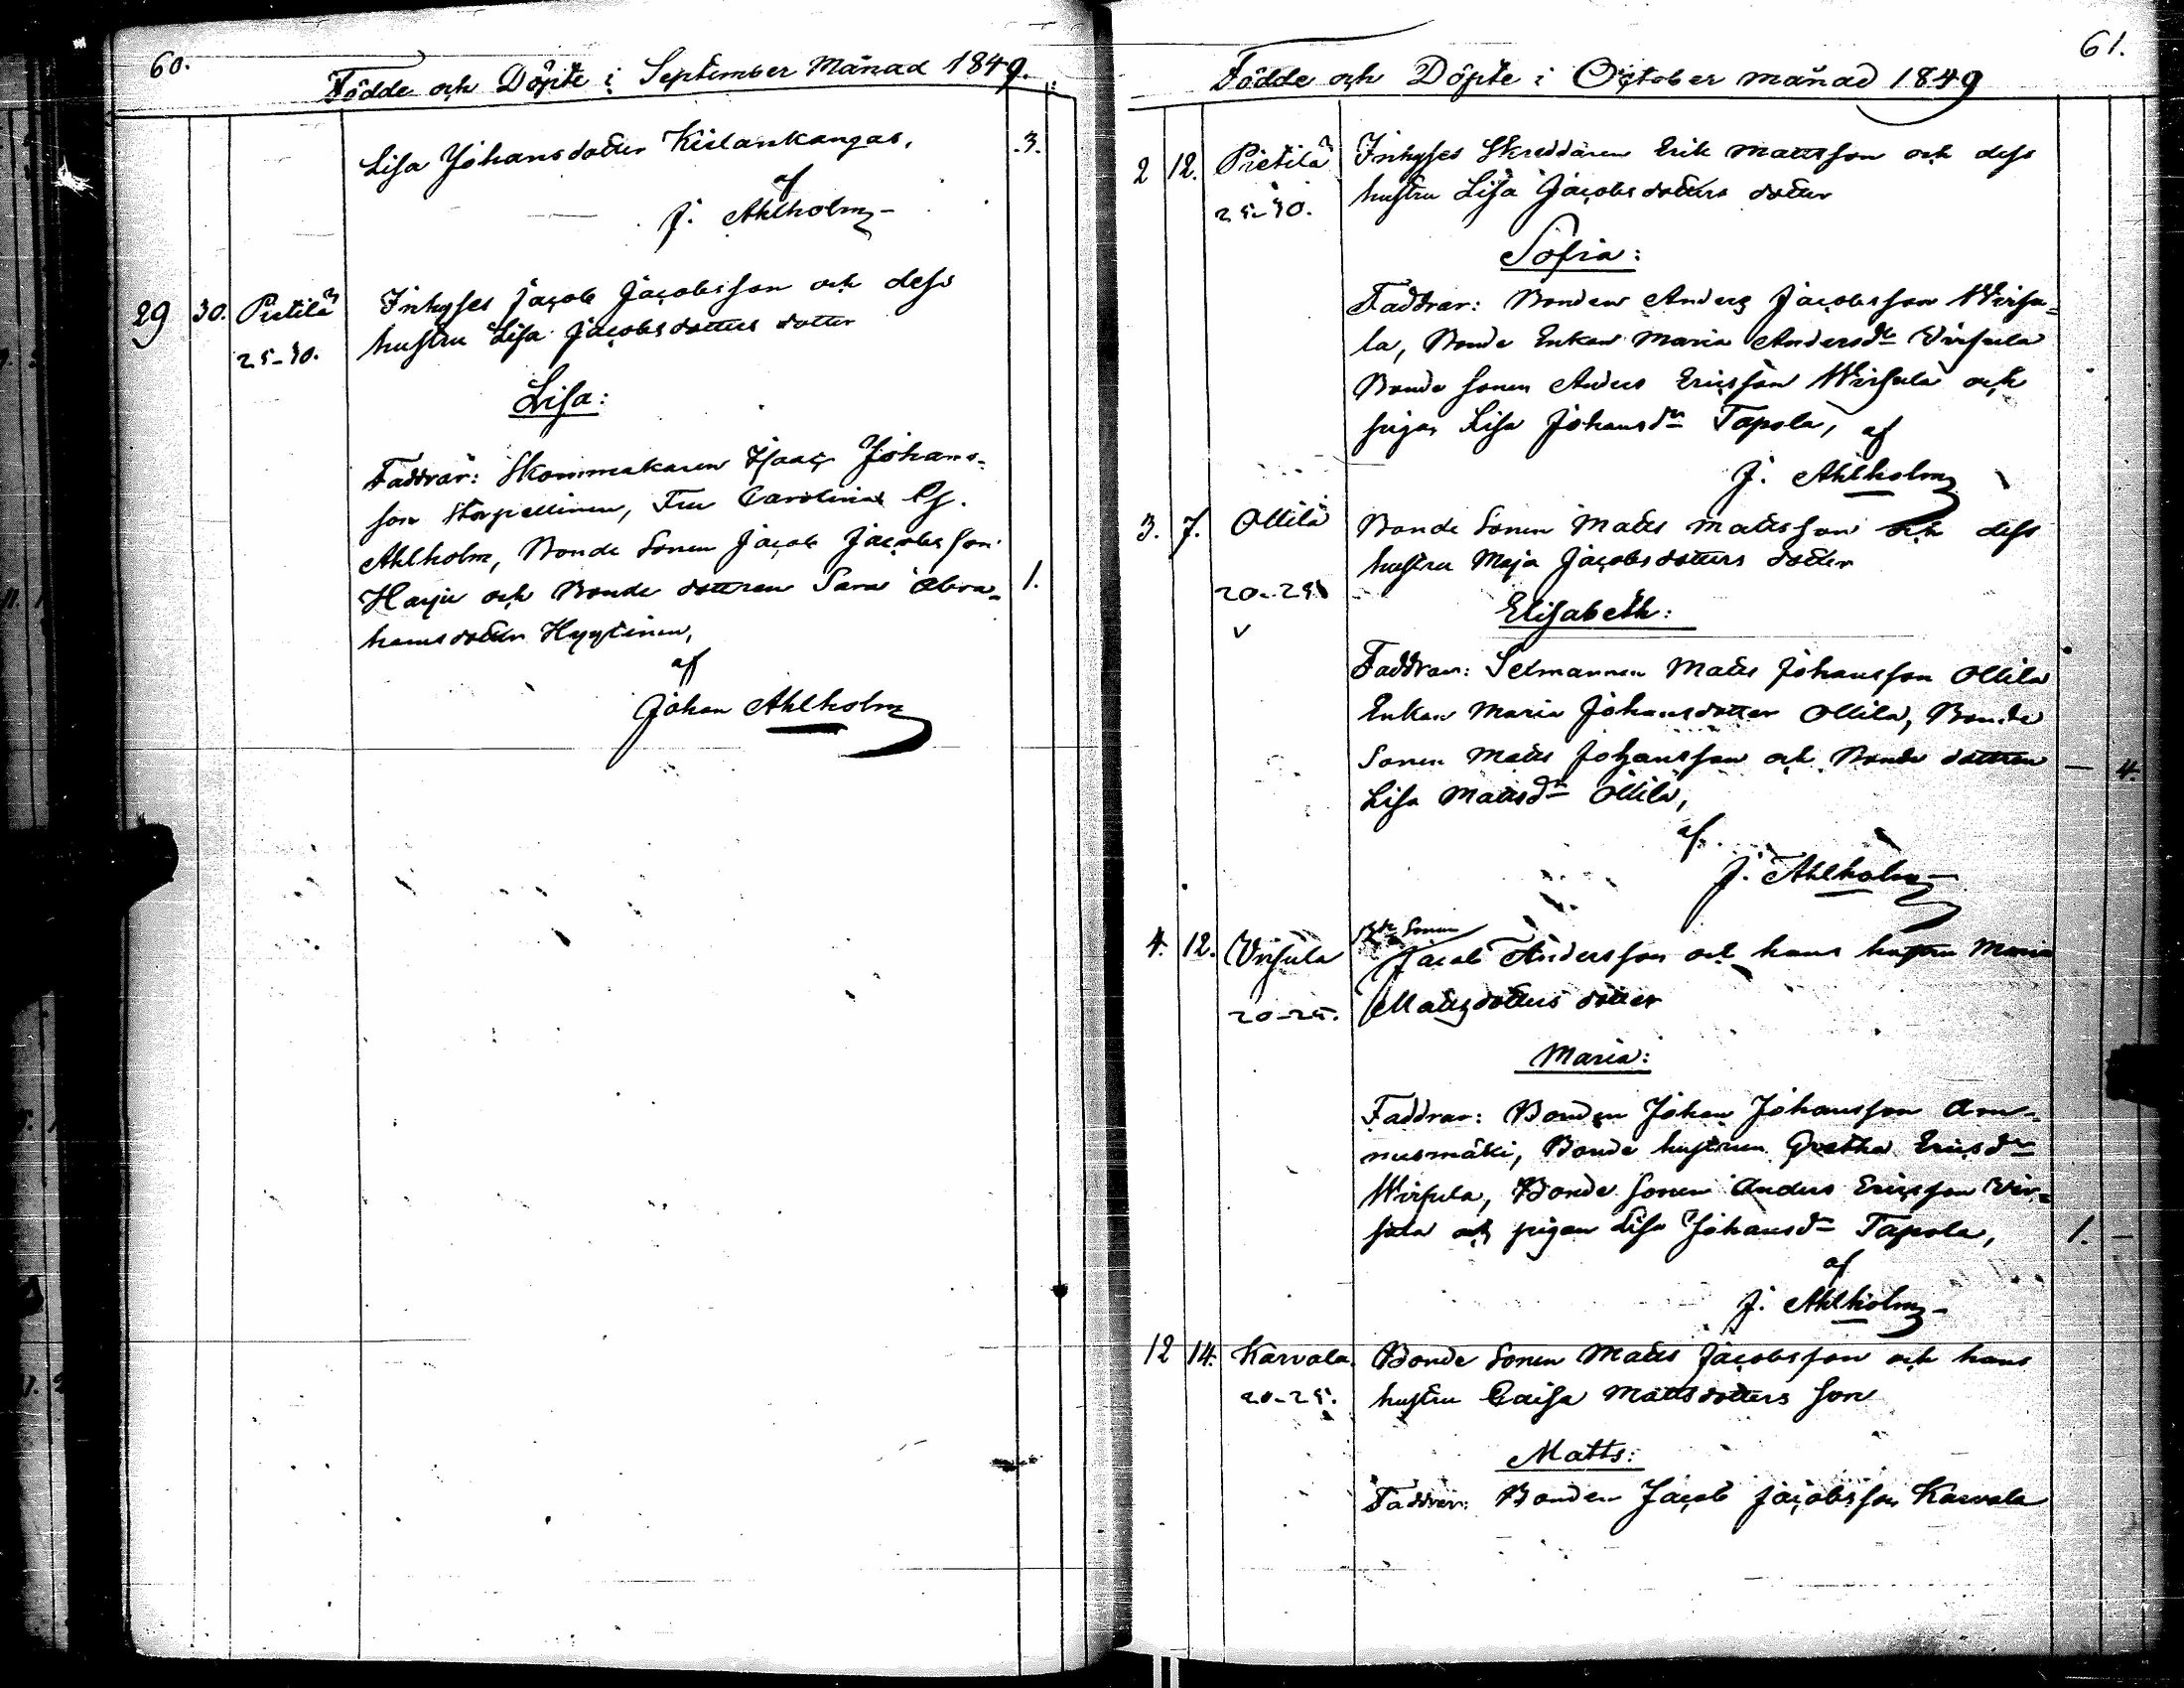 60.
Födde och Döpte i September Månad 1849.
Lisa Johansdotter Kislankangas. 3.
af
J. Ahlholm
29 30. Pietilä Inhyses Jacob Jacobsson och dess
25-30. hustru Lisa Jacobsdotters dotter
Lisa:
Faddrar: Skommakaren Isaac Johans-
son Storpellinen, Fru Carolina
Ahlholm, Bonde Sonen Jacob Jacobsson
Harju och Bonde dottren Sara Abra- 1.
hamsdotter Hyytinen,
af
Johan Ahlholm
61.
Födde och Döpte i October månad 1849
2 12. Pietilä Inhyses Skreddaren Erik Mattsson och dess
25-30. hustru Lisa Jacobsdotters dotter
Sofia:
Faddrar: Bonden Anders Jacobsson Wirsu-
la, Bonde Enkan Maria Andersdr Virsula
Bonde sonen Anders Ericsson Wirsula och
pigan Lisa Johansdr Tapola, af
J. Ahlholm
3. 7. Ollila Bonde Sonen Matts Mattsson och dess
hustru Maja Jacobsdotters dotter
20-25
v
Elisabeth:
Faddrar: Sexmannen Matts Johansson Ollila
Enkan Maria Johansdotter Ollila, Bonde
Sonen Matts Johansson och Bonde dottren — 4.
Lisa Mattsdr Ollila,
af
J. Ahlholm
Bde Sonen
4. 12. Virsula Jacob Andersson och hans hustru Maria
20-25. Mattsdotters dotter
Maria:
Faddrar: Bonden Johan Johansson Am-
musmäki, Bonde hustrun Gretha Ericsdr
Wirsula, Bonde sonen Anders Ericsson Vir-
sula och pigan Lisa Johansdr Tapola, 1. —
af
J. Ahlholm
12 14. Karvala Bonde Sonen Matts Jacobsson och hans
20-25. hustru Caisa Mattsdotters son
Matts:
Faddrar: Bonden Jacob Jacobsson Karvala